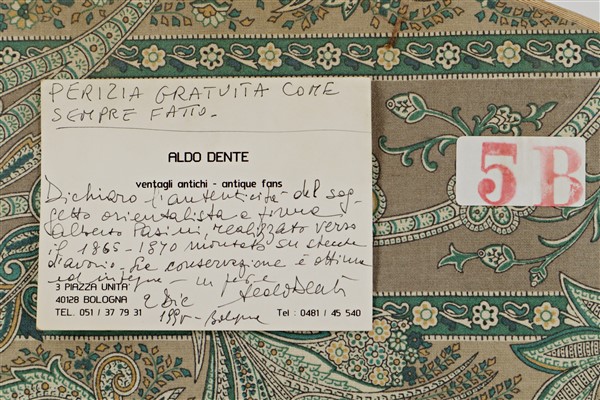 PERIZIA GRATUITA COME
SEMPRE FATTO.
ALDO DENTE
ventagli antichi - antique fans
Dichiaro l'autenticità del sog-
getto orientalista a firma
Alberto Pasini, realizzato verso
il 1865-1870 montato su stecche
d'avorio. La conservazione è ottima
ed integra - in fede
3 PIAZZA UNITA'
40128 BOLOGNA
TEL. 051 / 37 79 31
2 Dic
1990 - Bologna
Aldo Dente
Tel : 0481 / 45 540
5B